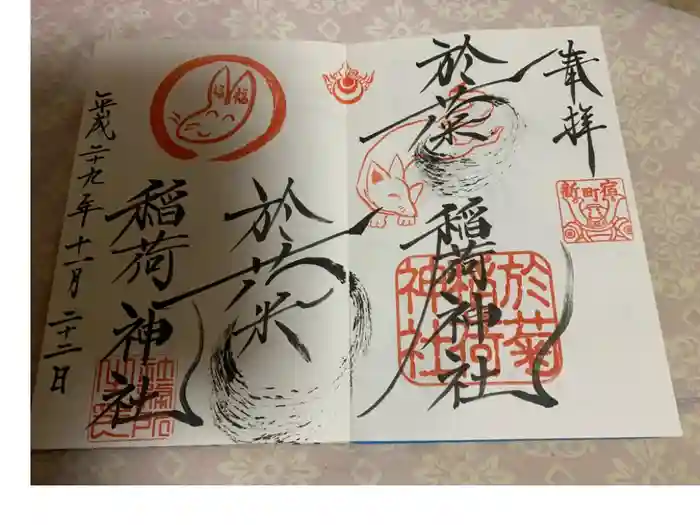 奉拝
新町宿
於菊
稲荷神社
於菊
稲荷
神社
於菊
稲荷
神社
福福
平成二十九年十一月二十二日